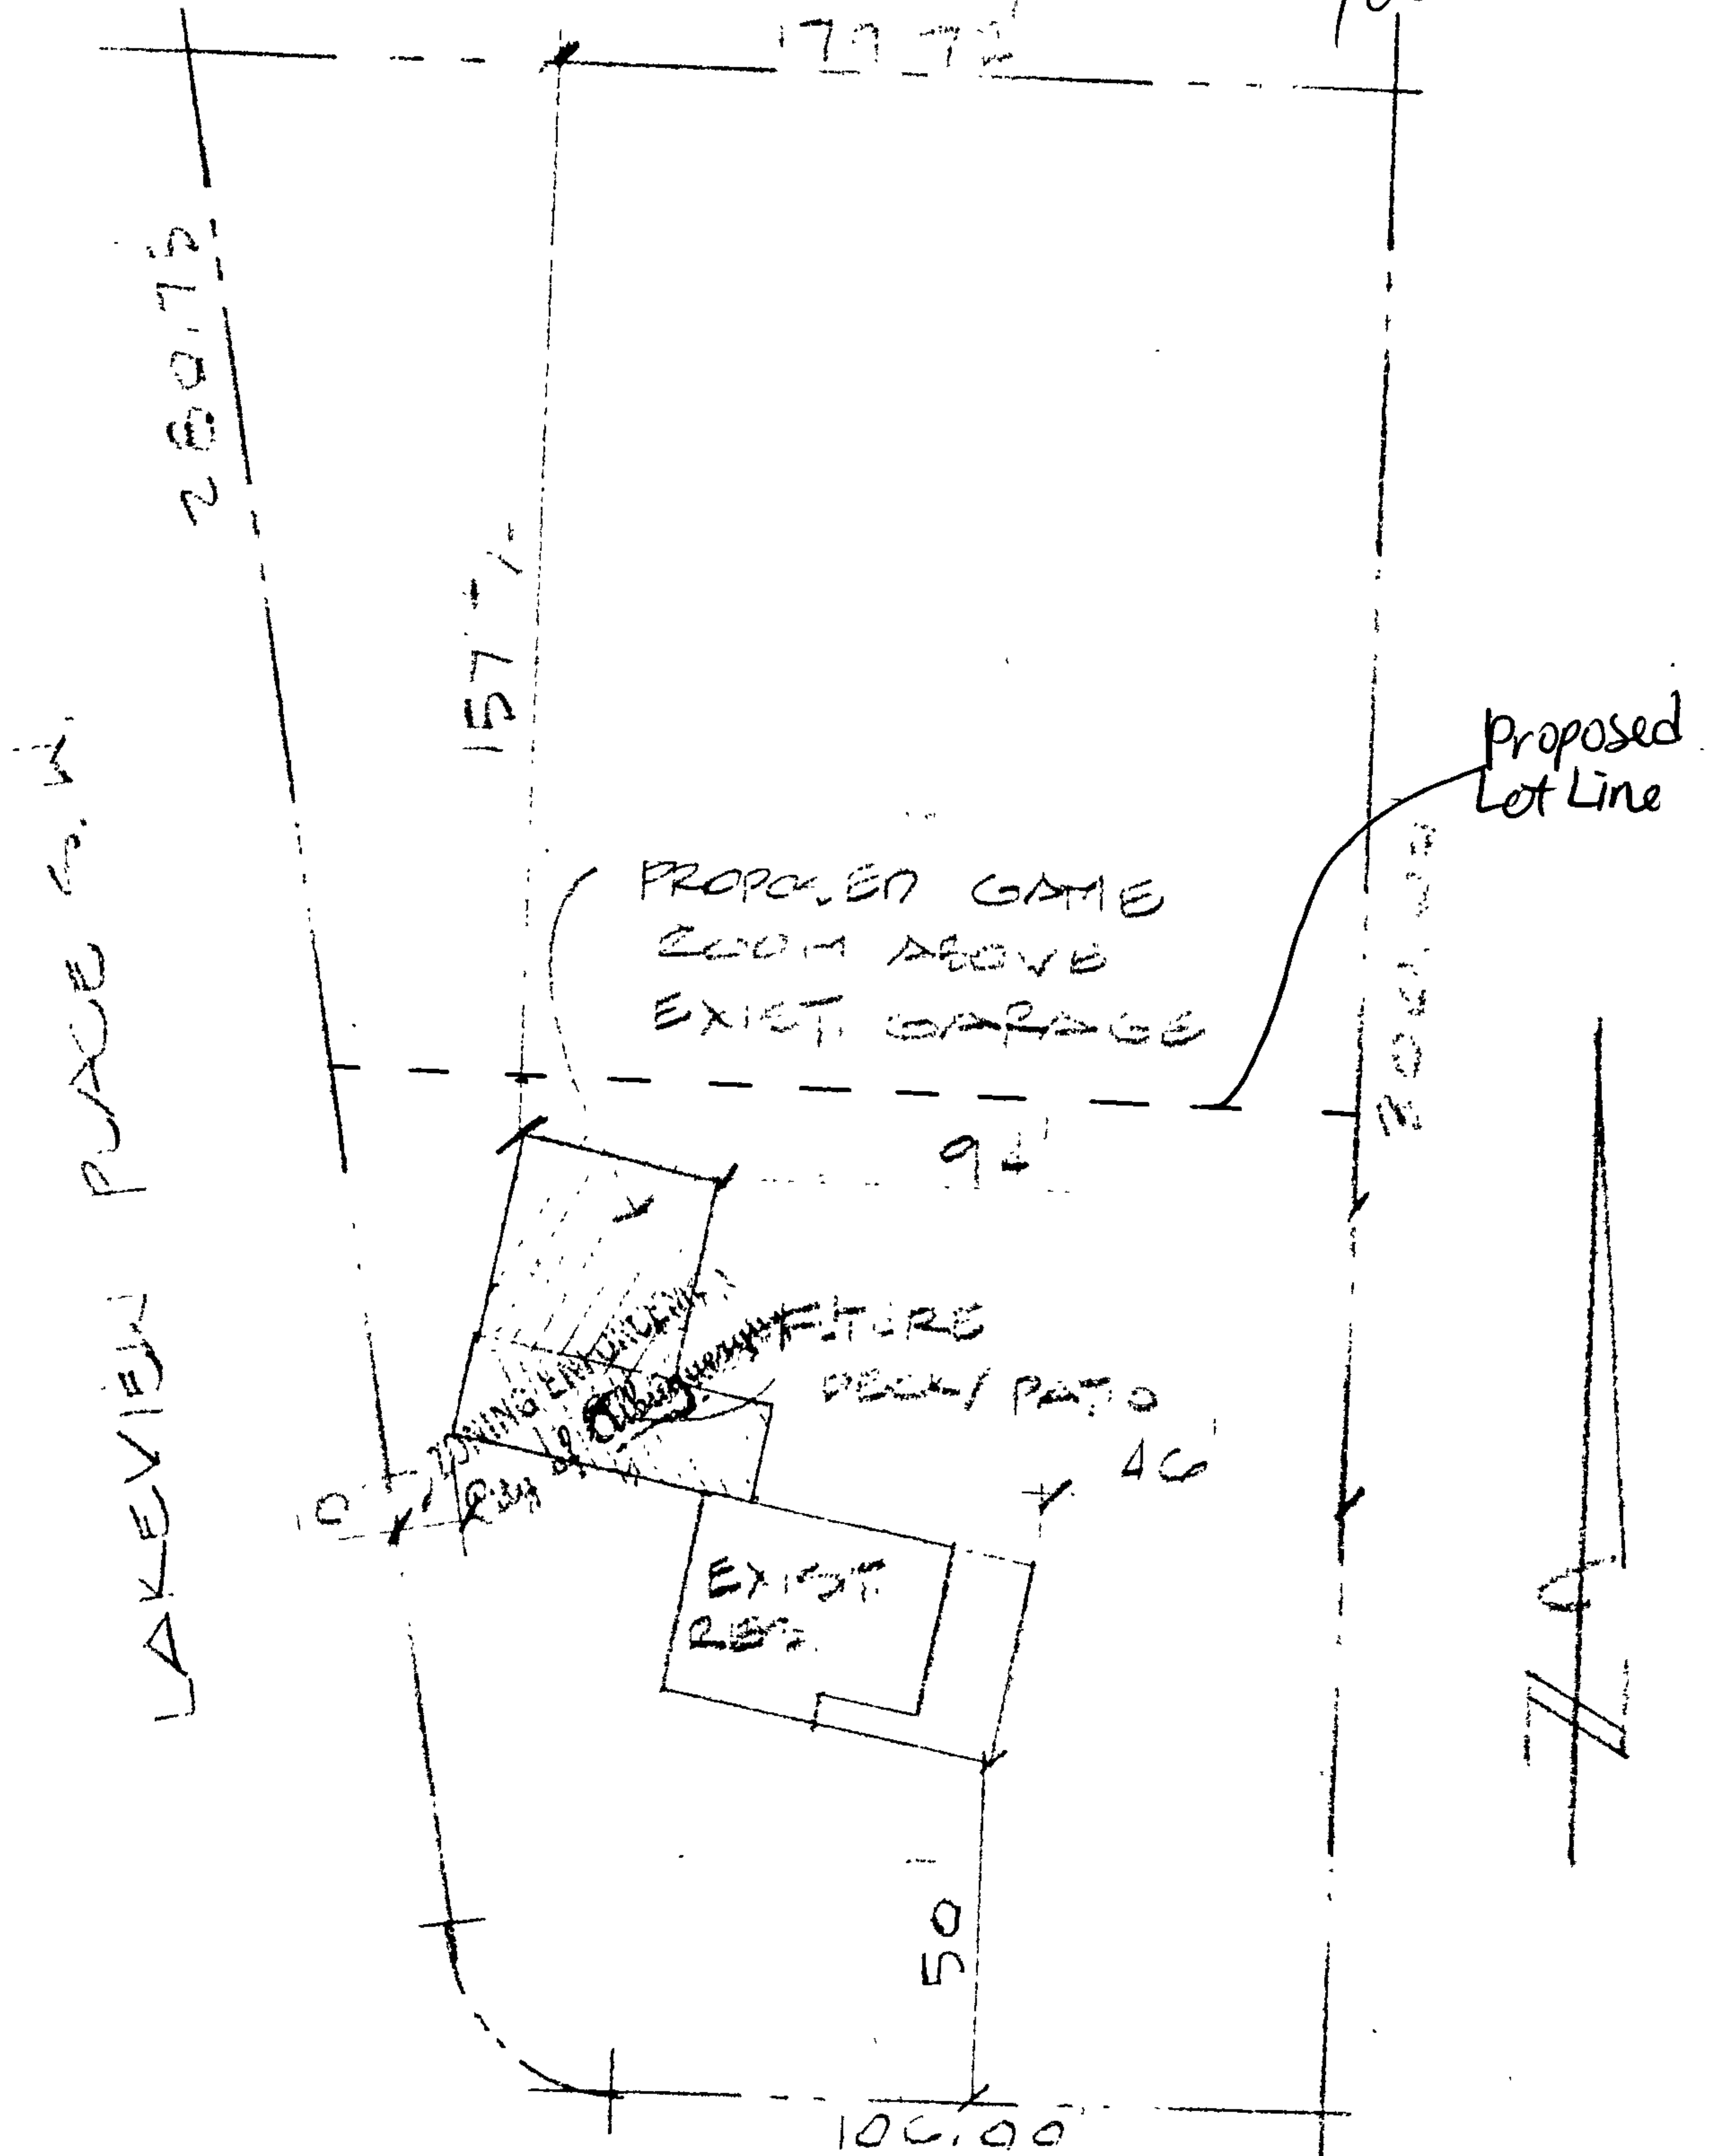 179.72'
280.75
157 +/-
LAKEVIEW PLACE S.W.
Proposed
Lot Line
PROPOSED GAME
ROOM ABOVE
EXIST. GARAGE
94'
FUTURE
DECK / PATIO
ZONING ENFORCEMENT
City of Albuquerque
46'
10'
EXIST.
RES.
N
50'
106.00